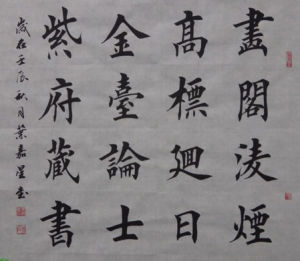 畫閣淩煙
高標迴日
金臺論士
紫府藏書
歲在壬辰秋月葉嘉星書